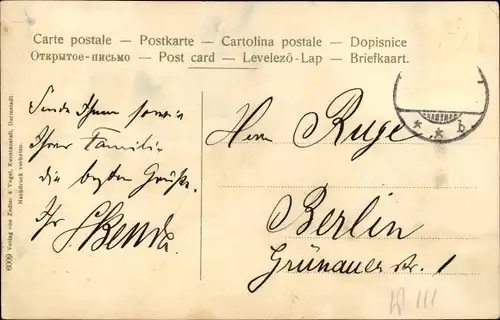 Carte postale — Postkarte — Cartolina postale — Dopisnice
Открытое-письмо — Post card — Levelező-Lap — Briefkaart.
Sende Ihnen sowie
Ihrer Familie
die besten Grüße.
Ihr
Herrn Ruge
Berlin
Grünauerstr. 1
W III
6009 Verlag von Zedler & Vogel, Kunstanstalt, Darmstadt.
Nachdruck verboten.
* * b